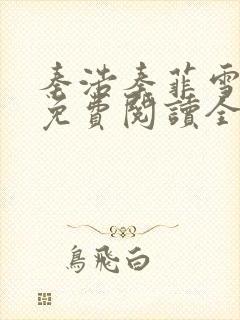 秦浩秦菲雪
免費閱讀全
鳥飛白